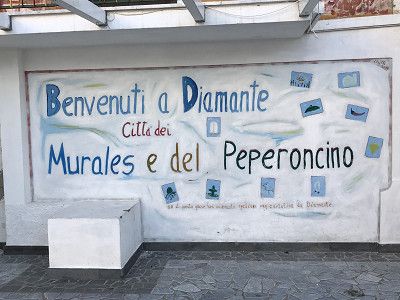 Benvenuti a Diamante
Città dei
Murales e del Peperoncino